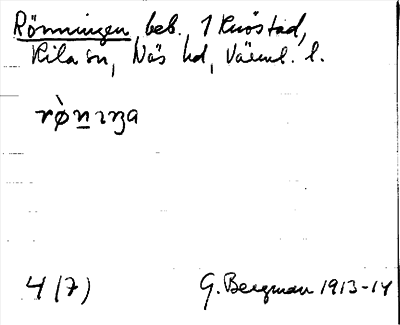 Rönningen, beb., 1 Knöstad,
Kila sn, Näs hd, Värml. l.
rø̀nıŋa
4 (7) G. Bergman 1913-14